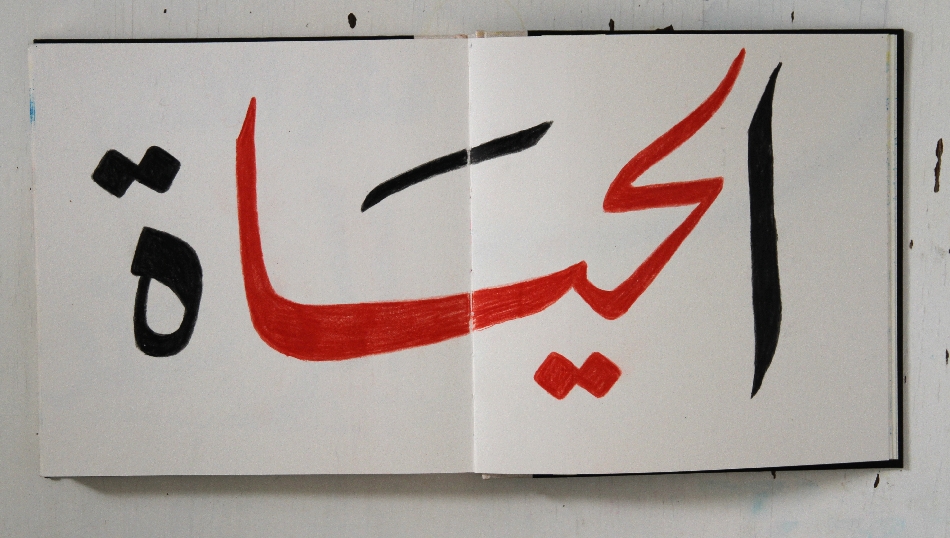 الحيَاة